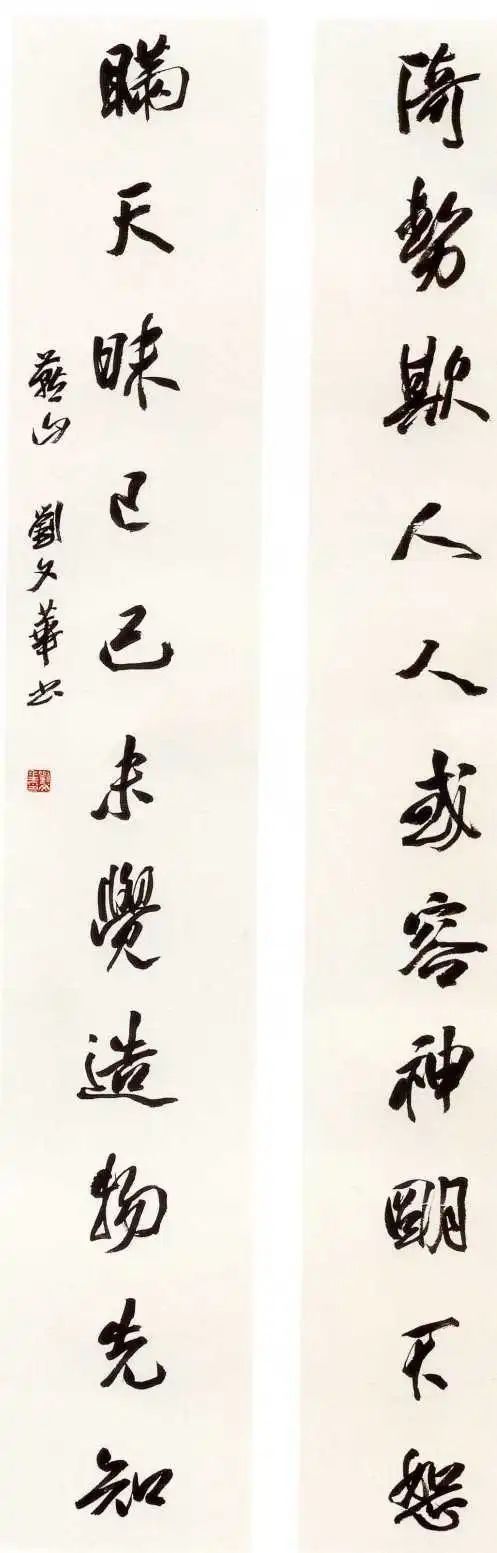 倚勢欺人人或容神明不恕
瞞天昧己己未覺造物先知
燕山 劉文華書